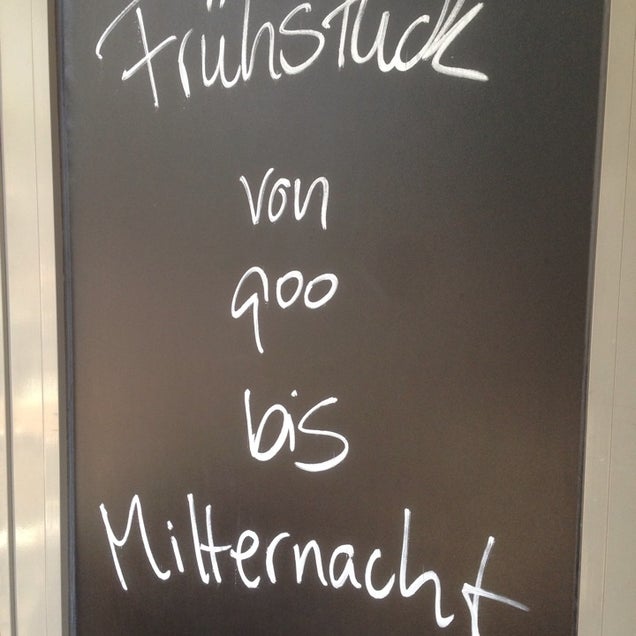 Frühstück
von
900
bis
Mitternacht